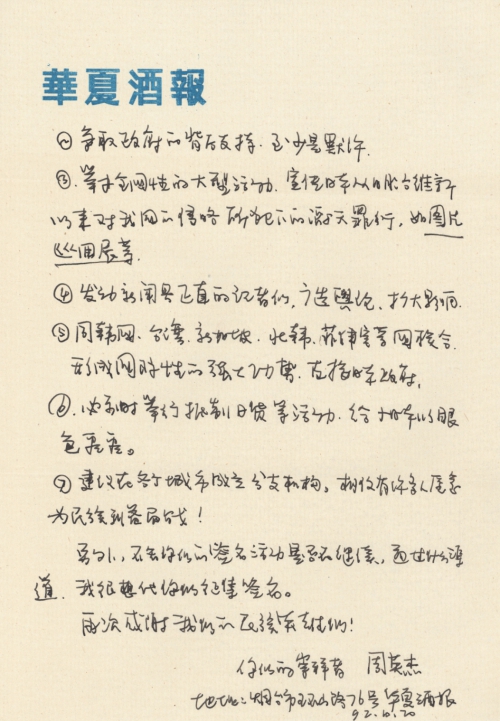 華夏酒報
② 争取政府的背后支持,至少是默许.
③.举办全国性的大型活动.宣传日本从明治维新
以来对我国的侵略所犯下的滔天罪行,如图片
巡回展等.
④ 发动新闻界正直的记者们,广造舆论、扩大影响.
⑤ 同韩国、台湾、新加坡、北韩、菲律宾等国联合.
形成国际性的强大功势.直指日本政府.
⑥.必要时举行抵制日货等活动.给日本以眼
色看看。
⑦ 建议在各个城市成立分支机构。相信有许多人愿意
为民族利益而战!
另外,不知你们的签名活动是否在继续,通过什么渠
道.我很想代你们征集签名。
再次感谢我们的民族英雄们!
你们的崇拜者 周英杰
地址:烟台市 山路76号华夏酒报
92.10.20